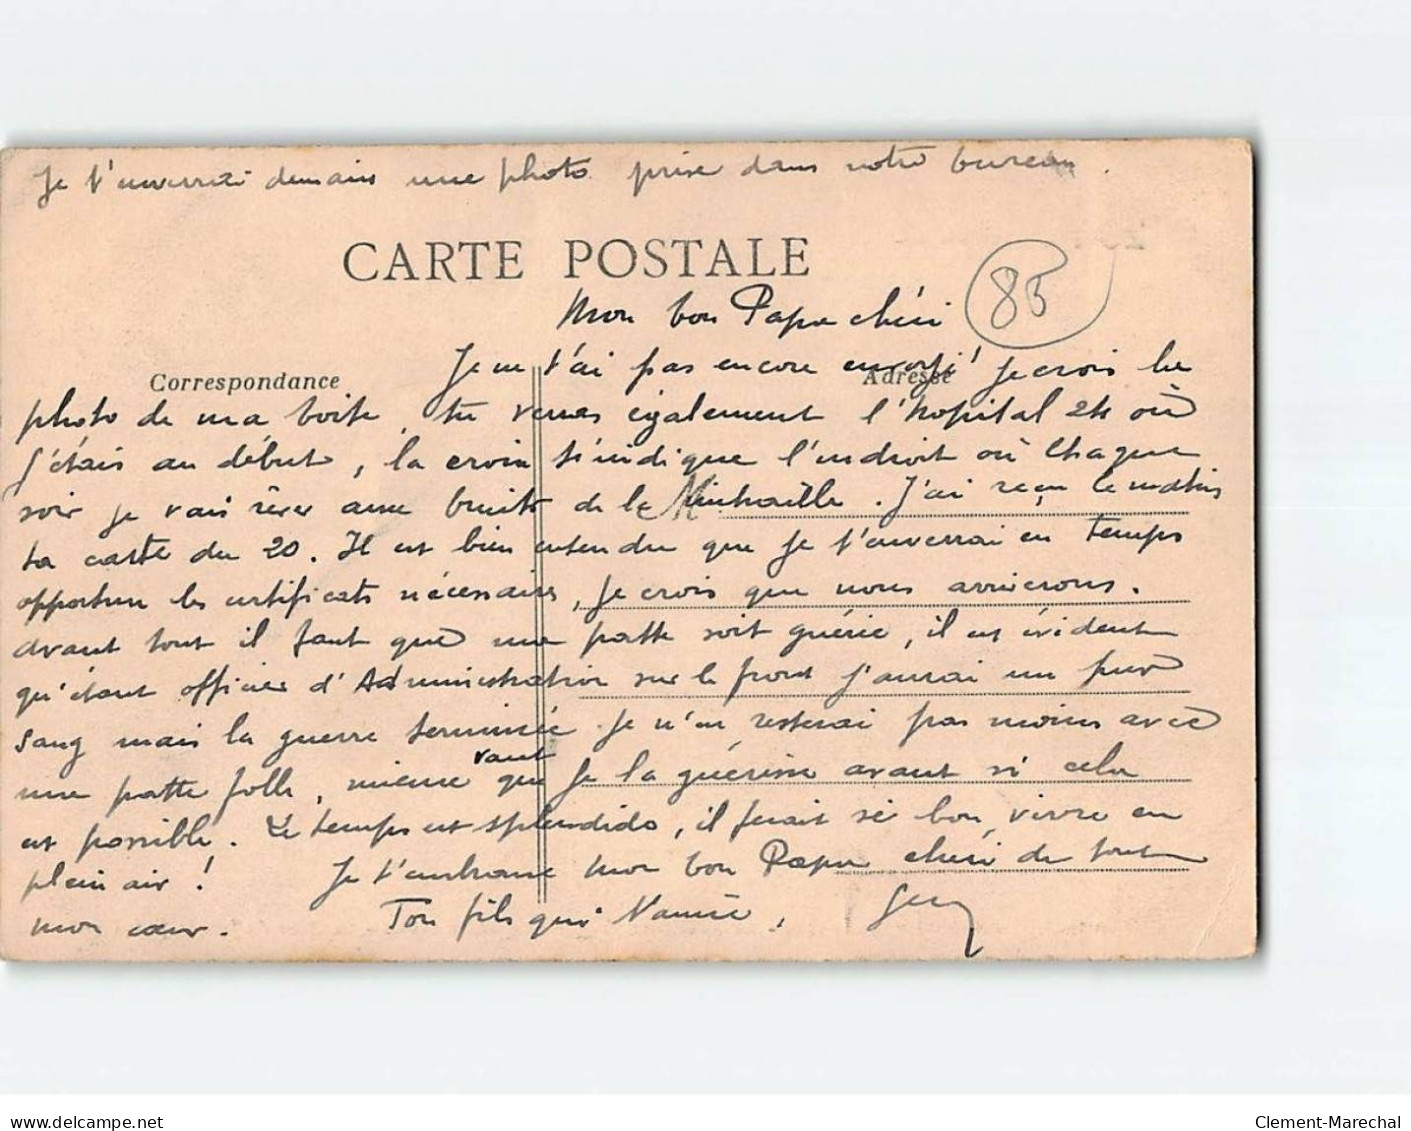 Je t'enverrai demain une photo prise dans notre bureau.
CARTE POSTALE
85
Mon bon Papa chéri
Correspondance
Adresse
Je ne t'ai pas encore envoyé je crois la
photo de ma boite, tu verras également l'hopital 24 où
j'étais au début, la croix t'indique l'endroit où chaque
soir je vais rêver aux bruits de la Mitraille. J'ai reçu ce matin
ta carte du 20. Il est bien entendu que je t'enverrai en temps
opportun les certificats nécessaires, je crois que nous arriverons.
avant tout il faut que ma patte soit guérie, il est évident
qu'étant officier d'Administration sur le front j'aurai un pur
sang mais la guerre terminée je n'en resterai pas moins avec
une patte folle, mieux vaut que je la guérisse avant si cela
est possible. Le temps est splendide, il ferait si bon vivre en
plein air !
Je t'embrasse mon bon Papa chéri de tout
mon cœur.
Ton fils qui t'aime,
Delcampe.net
Clement-Marechal